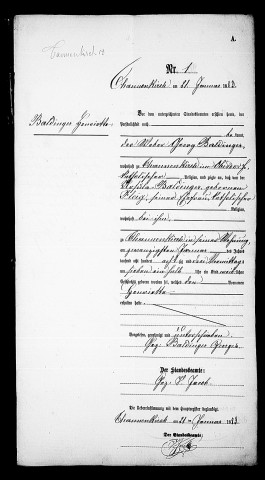 A.
Tannenkirch
Nr. 1
Thannenkirch am 21. Januar 1883.
Baldinger Henriette
Vor dem unterzeichneten Standesbeamten erschien heute, der
Persönlichkeit nach
kannt,
der Weber Georg Baldinger,
wohnhaft zu Thannenkirch im
katholischer Religion, und zeigte an, daß von der
Baldinger, geborenen
seiner Ehefrau, katholischer
Religion,
wohnhaft bei ihm,
zu Thannenkirch in seiner Wohnung,
am zwanzigsten Januar des Jahres
tausend acht hundert achtzig und drei Vormittags
um sieben ein halb Uhr ein Kind weiblichen
Geschlechts geboren worden sei, welches den Vornamen
Henriette
erhalten habe.
Vorgelesen, genehmigt und unterschrieben
Gez: Baldinger Georges.
Der Standesbeamte:
Gez:
Die Uebereinstimmung mit dem Hauptregister beglaubigt
Thannenkirch am 21. Januar 1883.
Der Standesbeamte: